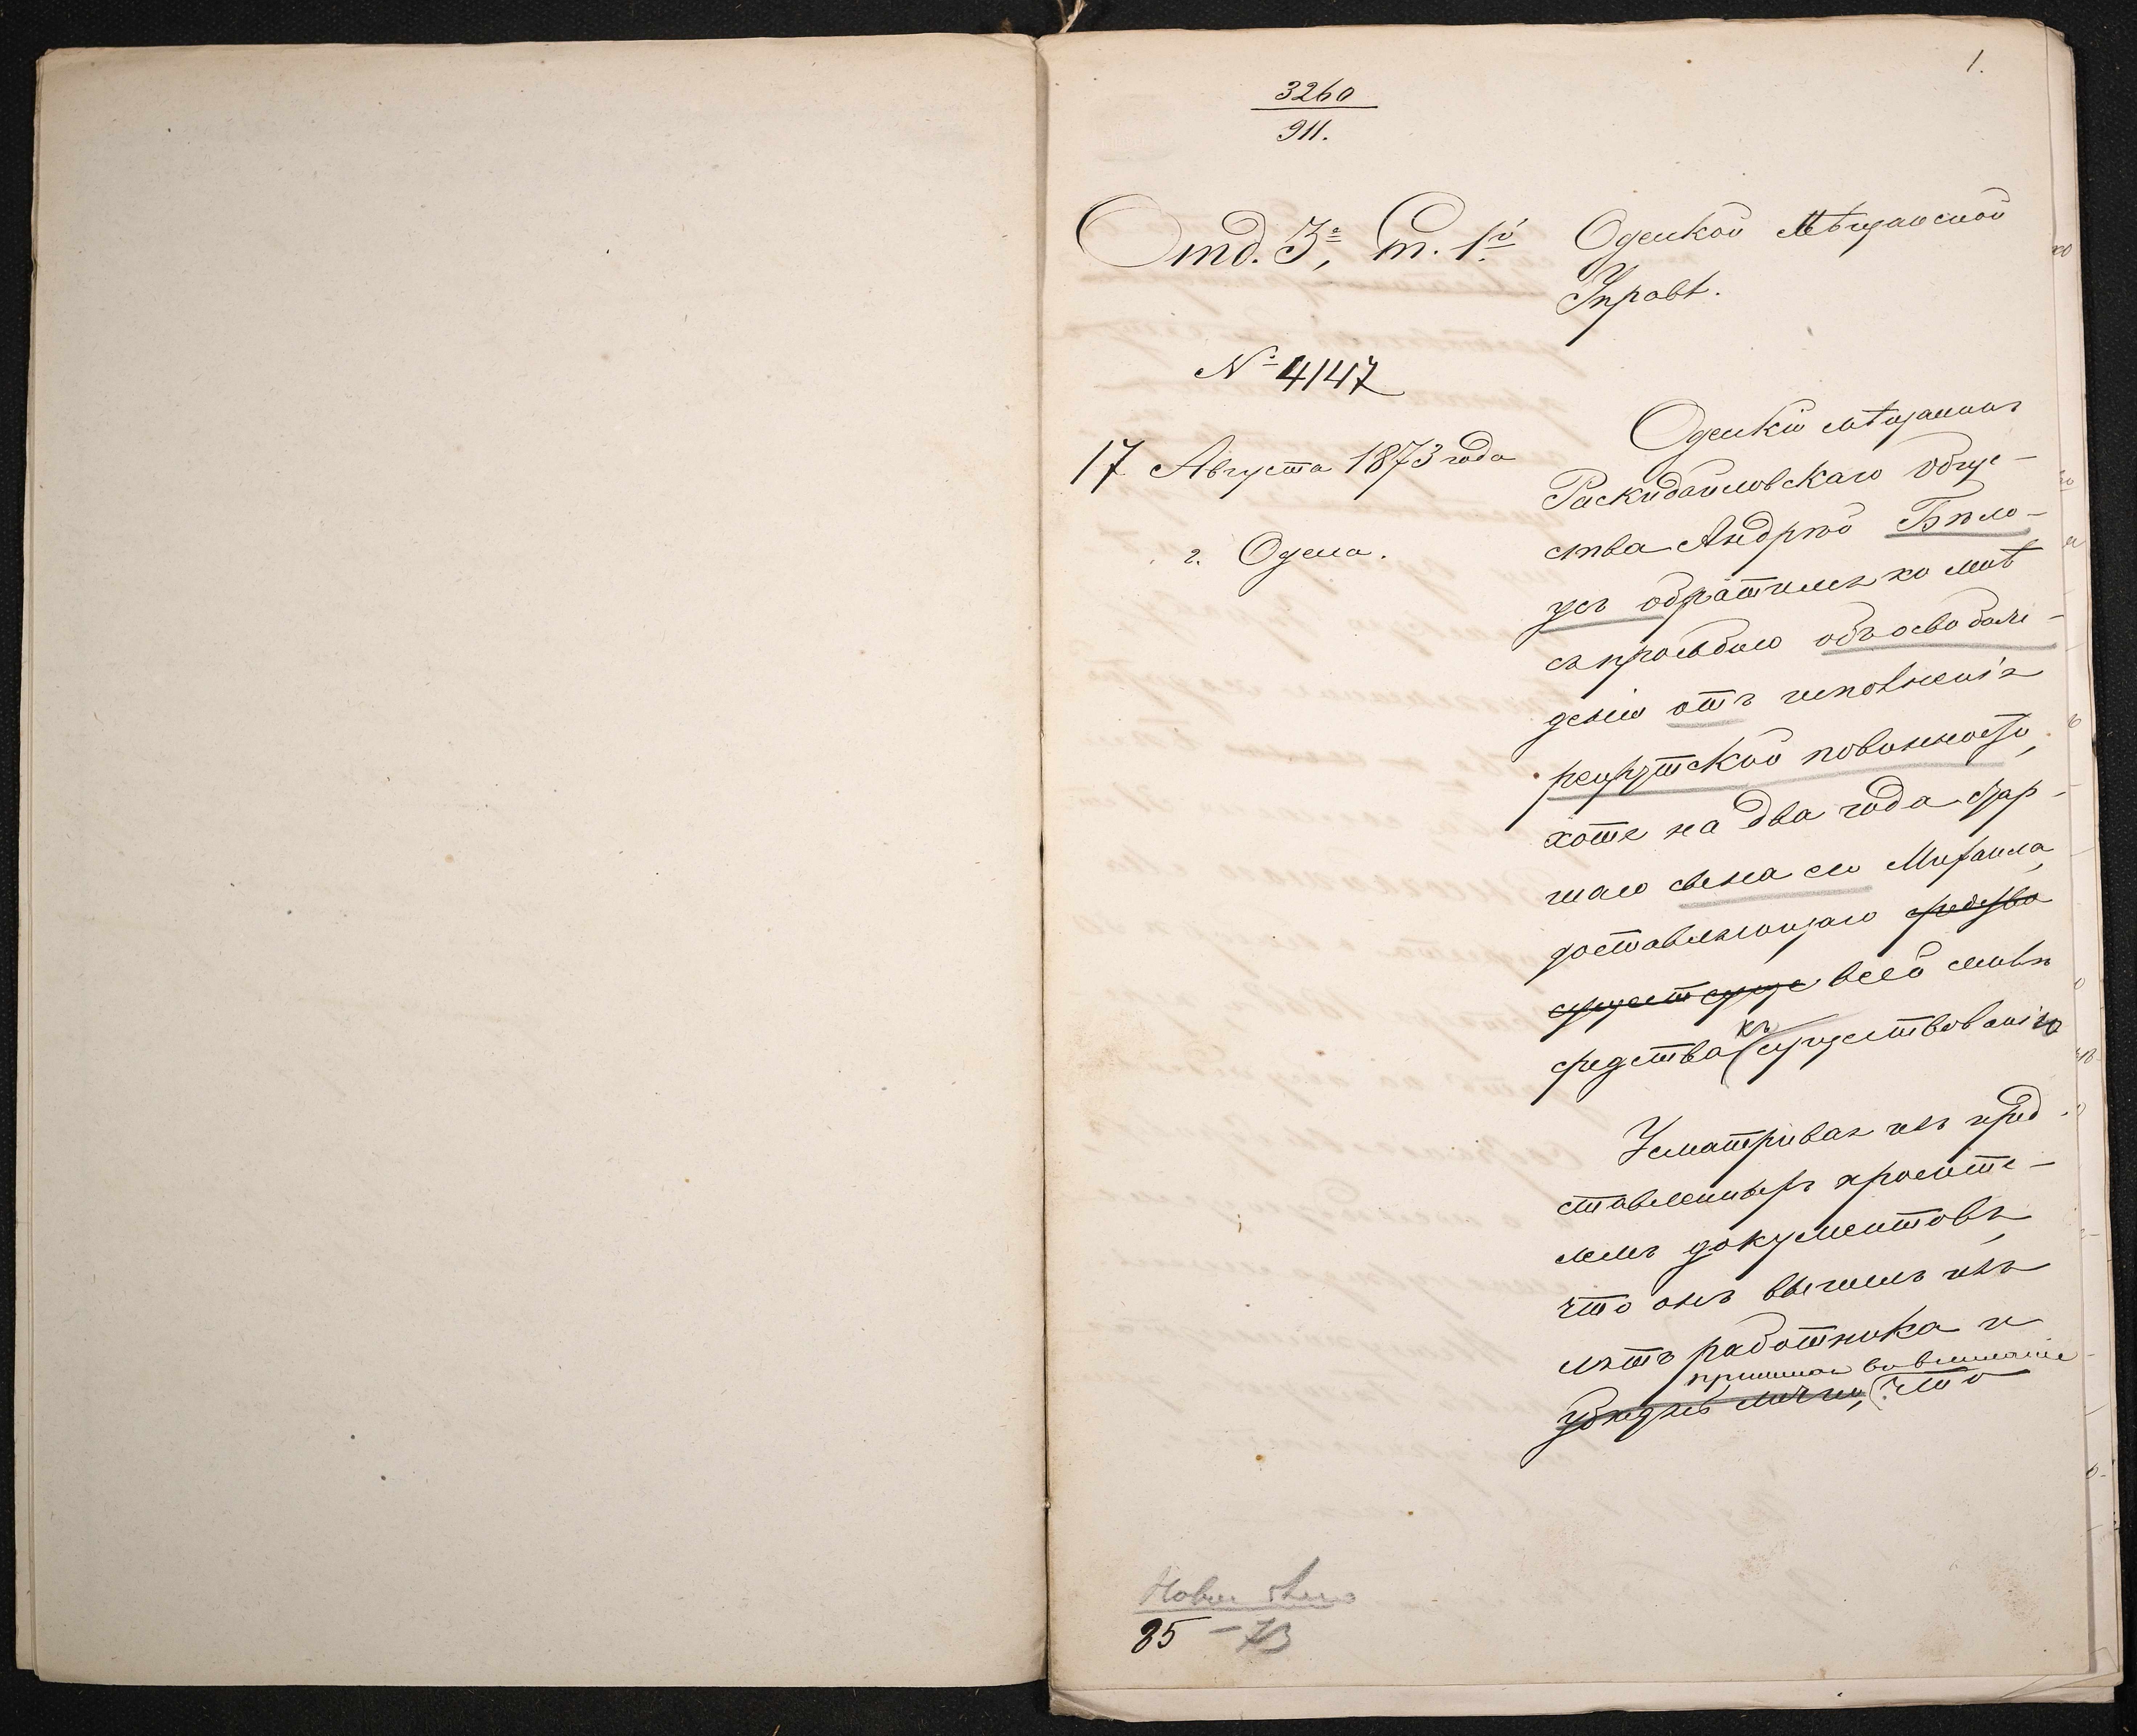 1.
3260
911.
Отд. 3е, Ст. 1й
№ 4147
17 Августа 1873 года
г. Одесса.
Одесской Мѣщанской
Управѣ.
Одесскій мѣщанинъ
Раскидайловскаго обще-
ства Андрѣй Бѣло-
усъ обратился ко мнѣ
съ просьбою объ освобож-
деніи отъ исполненія
рекрутской повинности,
хотя на два года стар-
шаго сына его Михаила,
доставляющаго средства
всей семьѣ
средства къ существованію
Усматривая изъ пред-
ставленныхъ просите-
лемъ документовъ,
что онъ вышелъ изъ
лѣтъ работника и
принимая во вниманіе
что
85 - 73